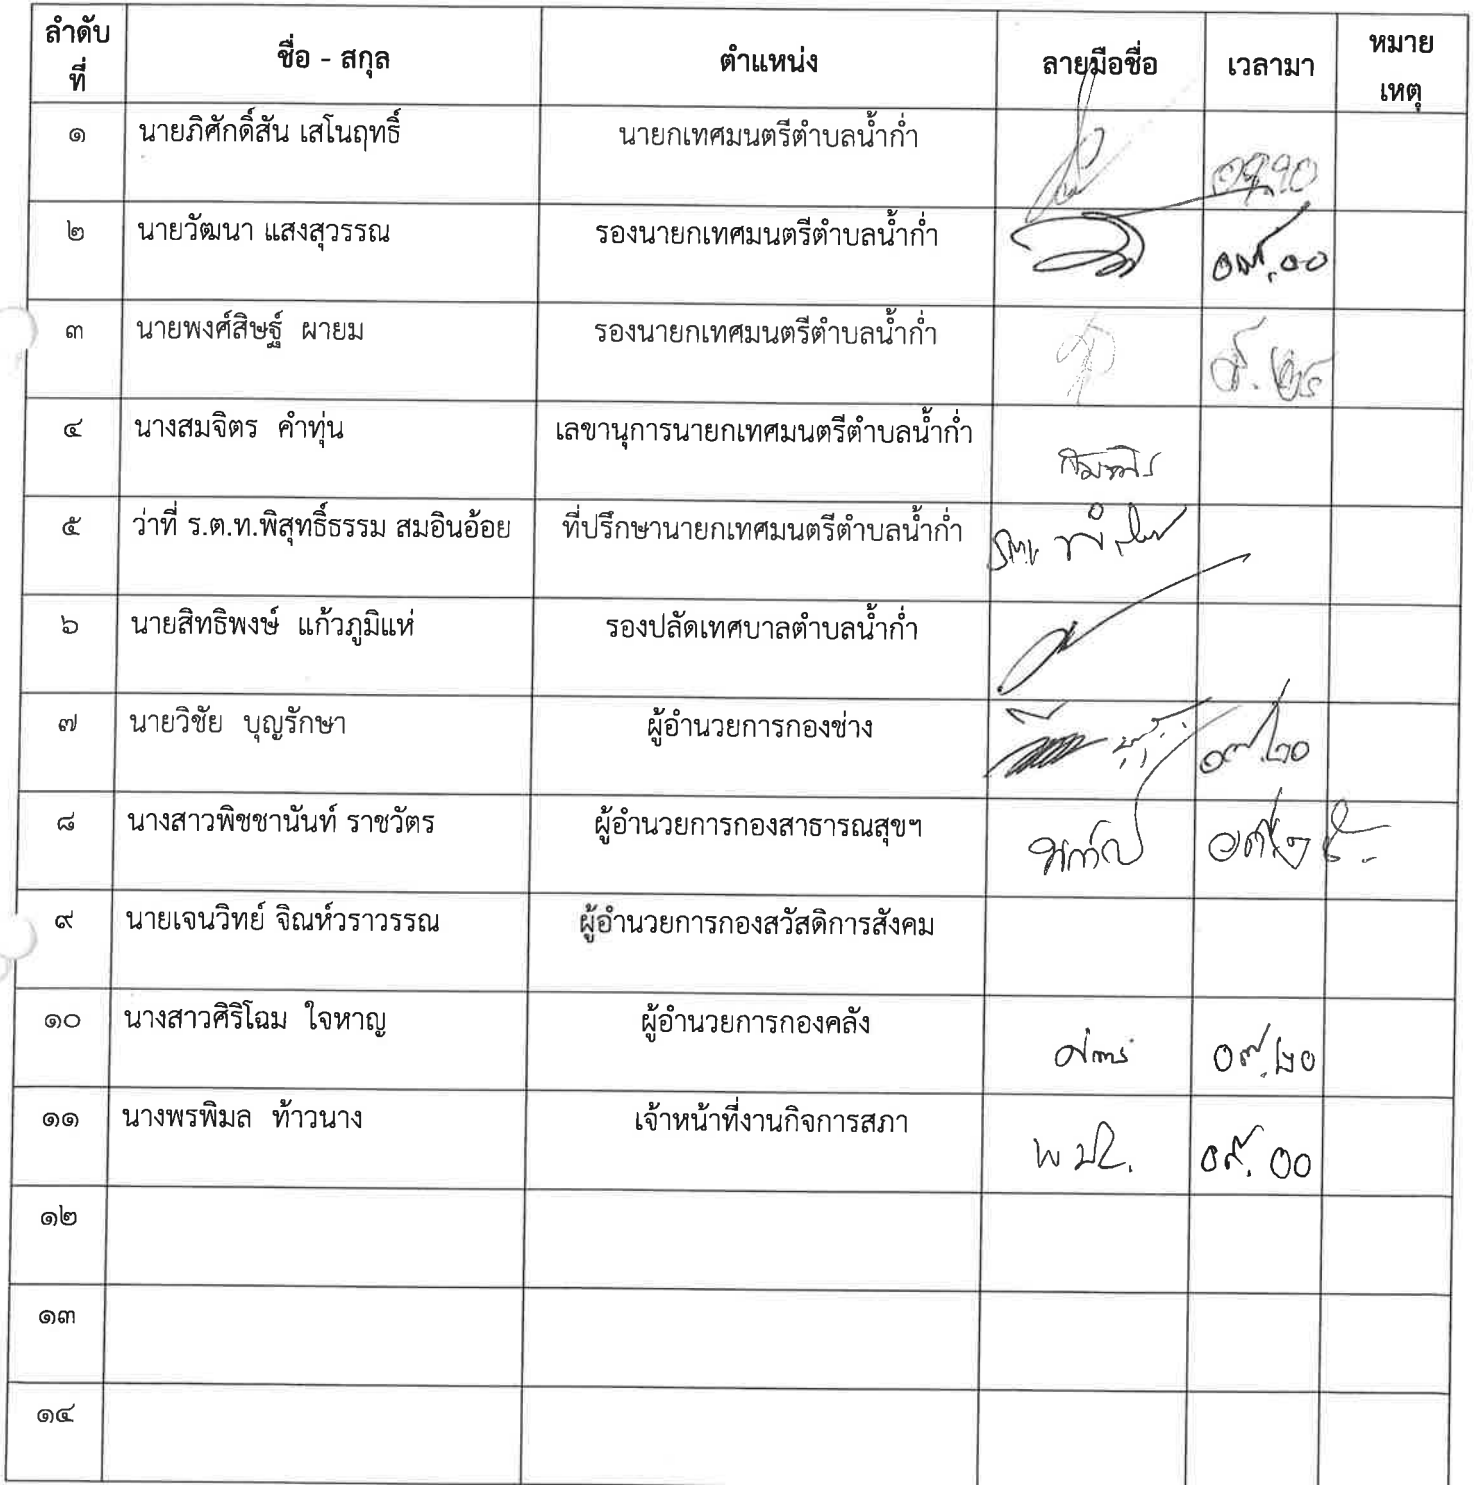 ลำดับที่ ชื่อ - สกุล ตำแหน่ง ลายมือชื่อ เวลามา หมายเหตุ
๑ นายภิศักดิ์สัน เสโนฤทธิ์ นายกเทศมนตรีตำบลน้ำก่ำ
๒ นายวัฒนา แสงสุวรรณ รองนายกเทศมนตรีตำบลน้ำก่ำ ๐๙.๐๐
๓ นายพงศ์สิษฐ์ ผายม รองนายกเทศมนตรีตำบลน้ำก่ำ
๔ นางสมจิตร คำทุ่น เลขานุการนายกเทศมนตรีตำบลน้ำก่ำ
๕ ว่าที่ ร.ต.ท.พิสุทธิ์ธรรม สมอินอ้อย ที่ปรึกษานายกเทศมนตรีตำบลน้ำก่ำ
๖ นายสิทธิพงษ์ แก้วภูมิแห่ รองปลัดเทศบาลตำบลน้ำก่ำ
๗ นายวิชัย บุญรักษา ผู้อำนวยการกองช่าง ๐๙.๒๐
๘ นางสาวพิชชานันท์ ราชวัตร ผู้อำนวยการกองสาธารณสุขฯ
๙ นายเจนวิทย์ จิณห์วราวรรณ ผู้อำนวยการกองสวัสดิการสังคม
๑๐ นางสาวศิริโฉม ใจหาญ ผู้อำนวยการกองคลัง ๐๙.๒๐
๑๑ นางพรพิมล ท้าวนาง เจ้าหน้าที่งานกิจการสภา ๐๙.๐๐
๑๒
๑๓
๑๔